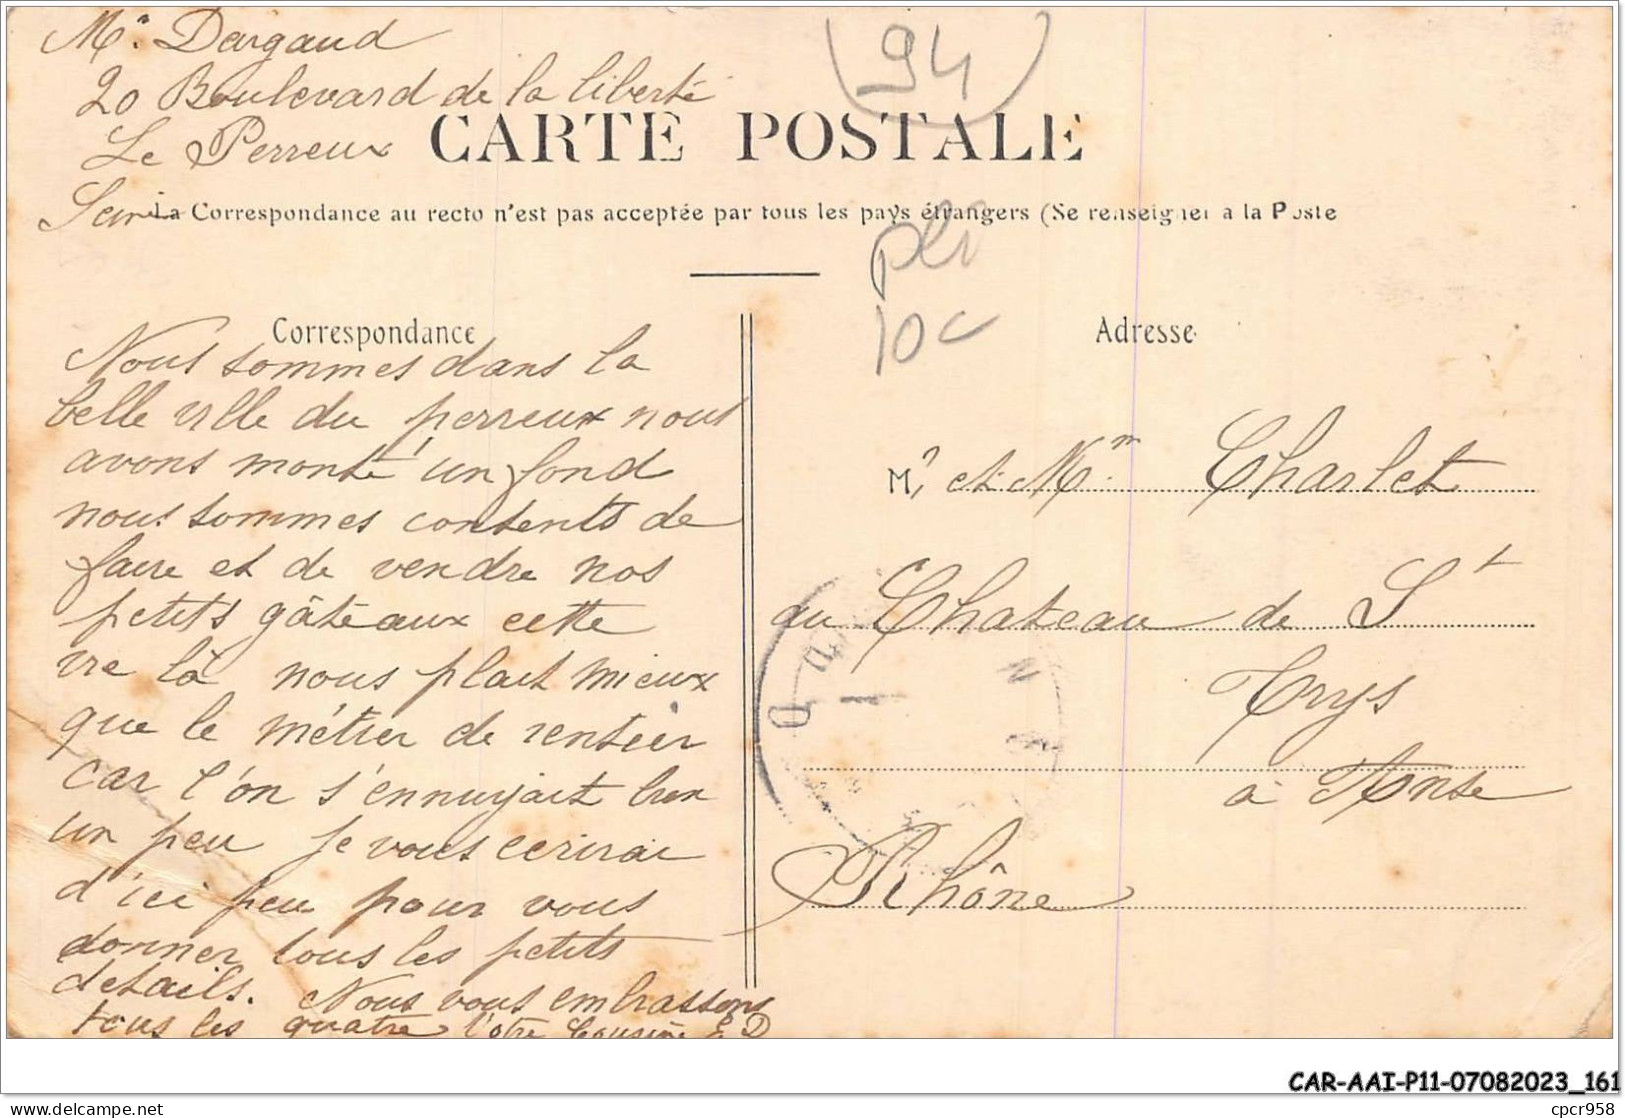 Mr Dargaud
20 Boulevard de la liberté
Le Perreux
Seine
(94)
CARTE POSTALE
La Correspondance au recto n'est pas acceptée par tous les pays étrangers (Se renseigner à la Poste
pli
10c
Correspondance
Nous sommes dans la
belle ville du perreux nous
avons monté un fond
nous sommes contents de
faire et de vendre nos
petits gâteaux cette
vie là nous plait mieux
que le métier de rentier
car l'on s'ennuyait bien
un peu je vous écrirai
d'ici peu pour vous
donner tous les petits
details. Nous vous embrassons
tous les quatre Votre Cousine E D
Adresse
Mr et Mm Charlet
au Chateau de St
Trys
à Anse
Rhône
CAR-AAI-P11-07082023_161
delcampe.net
cpcr958